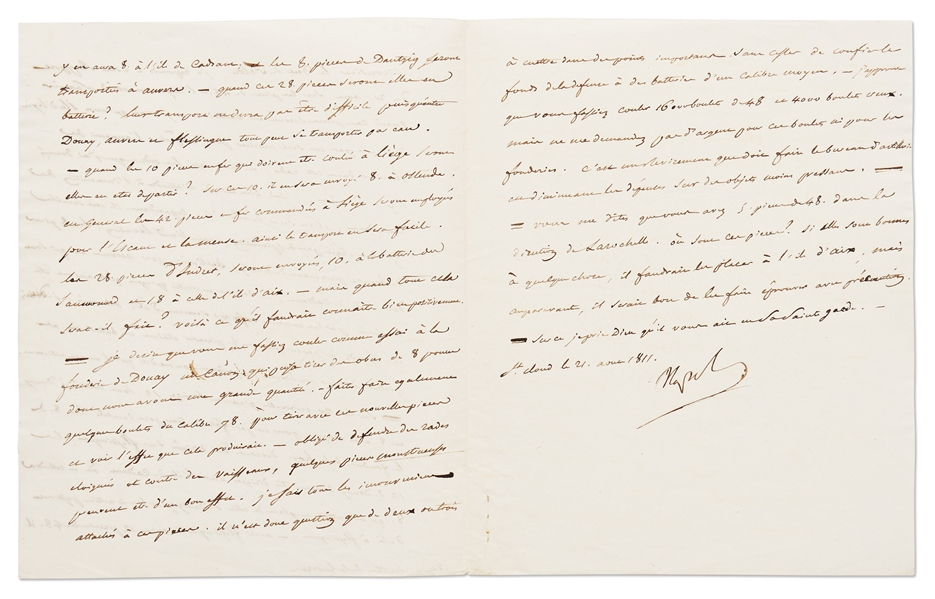 y en aura 8. à l'ile de Cadsan, — les 8. pieces de Dantzig seront
transportés à anvers. — quand ces 28 pieces seront elles en
batterie? leur transport ne devra pas être difficile puisqu'entre
Douay, anvers et flessingue tout peut se transporter par eau.
— quand les 10 pieces en fer qui doivent etre coulé à Liège seront
elles en etat de partir? Sur ces 10. il en sera envoyé 8. à ostende.
en General les 42 pieces en fer commandées à Liège seront employées
pour l'Escaut et la meuse. ainsi le transport en sera facile.
les 28 pieces D'Indret, seront envoyés, 10. à la batterie du
Saumonard et 18 à celle de l'ile d'aix. — mais quand tout cela
sera-t-il fait? voilà ce qu'il faudrait connaitre bien positivement.
— je desire que vous me fassiez couler comme essai à la
fonderie de Douay un Canon qui puisse tirer des obus de 8 pouces
dont nous avons une grande quantité. — faites faire egalement
quelques boulets du calibre 78. pour tirer avec ces nouvelles pieces
et voir l'effet que cela produirait. — obligé de defendre des rades
eloignées et contre des vaisseaux, quelques pieces monstrueuses
peuvent etre d'un bon effet. je sais tous les inconveniens
attachés à ces pieces. il n'est donc question que de deux ou trois
à mettre dans des points importans sans cesser de confier le
fonds de la defense à des batteries d'un calibre moyen. — j'approuve
que vous fassiez couler 16000 boulets de 48 et 4000 boulets creux.
mais ne me demandez pas d'argent pour ces boulets ni pour les
fonderies. c'est un virement que doit faire le bureau d'artillerie
en diminuant les dépenses sur des objets moins pressans. —
— vous me dites que vous avez 5. pieces de 48. dans la
direction de Larochelle. où sont ces pieces? si elles sont bonnes
à quelque chose, il faudrait les placer à l'ile d'aix, mais
auparavant, il serait bon de les faire éprouver avec précaution.
— Sur ce je prie Dieu qu'il vous ait en Sa Saint garde. —
St. cloud le 21. aout 1811.
Nap